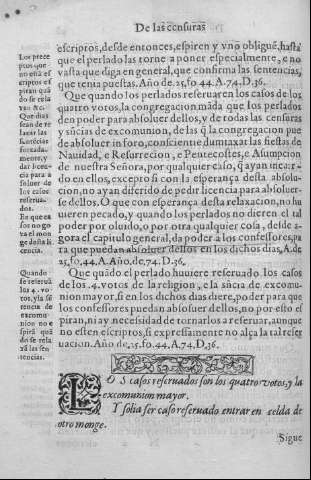 De las censuras
escriptos, desde entonces, espiren y vno obliguẽ, hasta
que el perlado las torne a poner especialmente, e no
vasta que diga en general, que confirma las sentencias,
que tenia puestas. Año de .25. fo. 44. A. 74. D. 36.
Que quando los perlados reseruaren los casos de los
quatro votos, la congregacion mãda que los perlados
den poder para absoluer dellos, y de todas las censuras
y sñcias de excomunion, de las q̃ la congregacion pue
de absoluer in foro, conscientie dumtaxat las fiestas de
Nauidad, e Resurrecion, e Pentecostes, e Assumpcion
de nuestra Señora, por qualquier caso, q̃ ayan incurri
do en ellos, excepto si con la esperança desta absolu-
cion, no ayan diferido de pedir licencia para absoluer-
se dellos. O que con esperança desta relaxacion, no hu
uieren pecado, y quando los perlados no dieren el tal
poder por oluido, o por otra qualquier cosa, desde a-
gora el capitulo general, da poder a los confessores, pa
ra que puedan absoluer dellos en los dichos dias, A. de
25. fo. 44. A. Año. de, 74. D. 36.
Que quãdo el perlado huuiere reseruado los casos
de los .4. votos de la religion, e la sñcia de excomu-
nion mayor, si en los dichos dias diere, poder para que
los confessores puedan absoluer dellos, no por esto es
piran, ni ay necessidad de tornarlos a reseruar, aunque
no esten escriptos, si expressamente no alça la tal reser
uacion. Año de, 25. fo. 44. A, 74, D, 36.
LOS casos reseruados son los quatro votos, y la
excomunion mayor.
Y solia ser caso reseruado entrar en celda de
otro monge.
Sigue
Los prece
ptos que
no estã es
criptos es
piran quã
do se rela
van &c.
Que dias
sean de re
laxar las
sentẽcias
forzada-
mente, y
dar licen-
cia para a
soluer de
los casos
reserua-
dos.
En que ca
sos no go
za el mon
ge desta li
cencia.
Quando
se reseruã
los .4. vo-
tos, y la sẽ
tencia de
excomu-
nion no e
spirã quã
do se rela
xã las sen-
tencias.